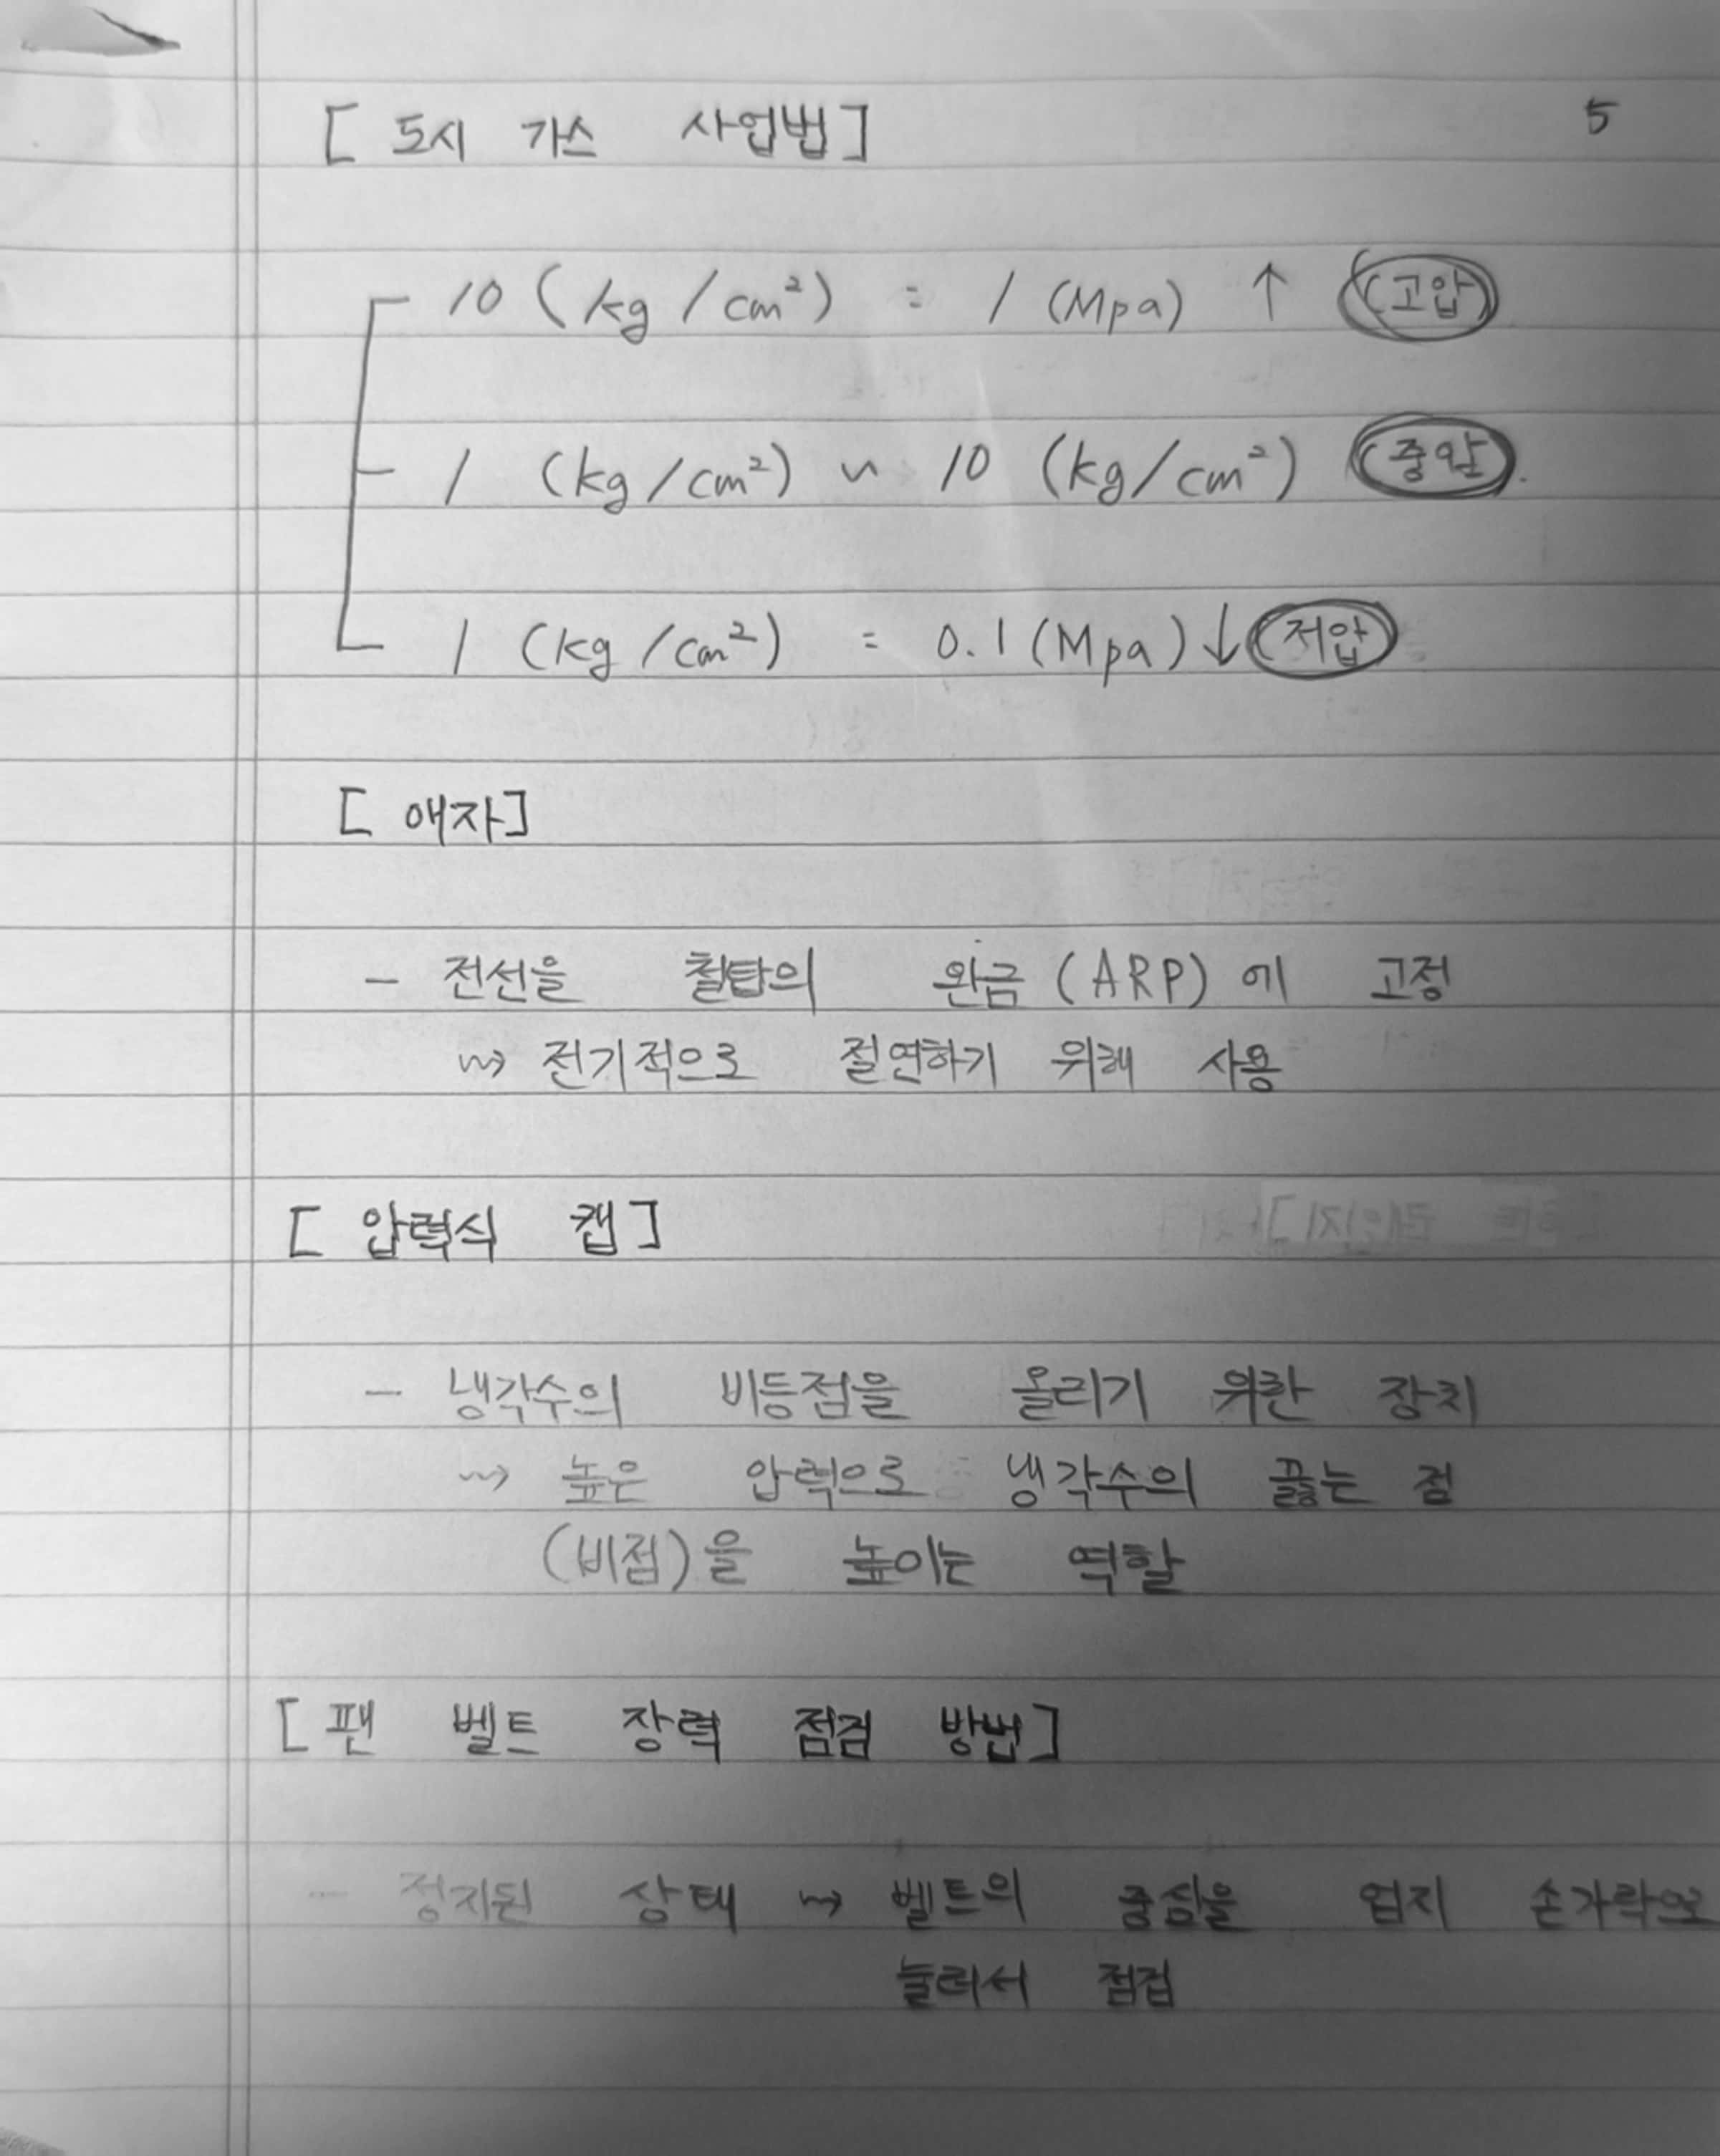 [ 도시 가스 사업법 ] 5
10 ( kg / cm² ) = 1 (Mpa) ↑ (고압)
1 (kg / cm²) ~ 10 (kg / cm²) (중압)
1 (kg / cm²) = 0.1 (Mpa) ↓ (저압)
[ 애자 ]
- 전선을 철탑의 완금 (ARP) 에 고정
↝ 전기적으로 절연하기 위해 사용
[ 압력식 캡 ]
- 냉각수의 비등점을 올리기 위한 장치
↝ 높은 압력으로 냉각수의 끓는 점
(비점)을 높이는 역할
[ 팬 벨트 장력 점검 방법 ]
- 정지된 상태 ↝ 벨트의 중심을 엄지 손가락으로
눌러서 점검